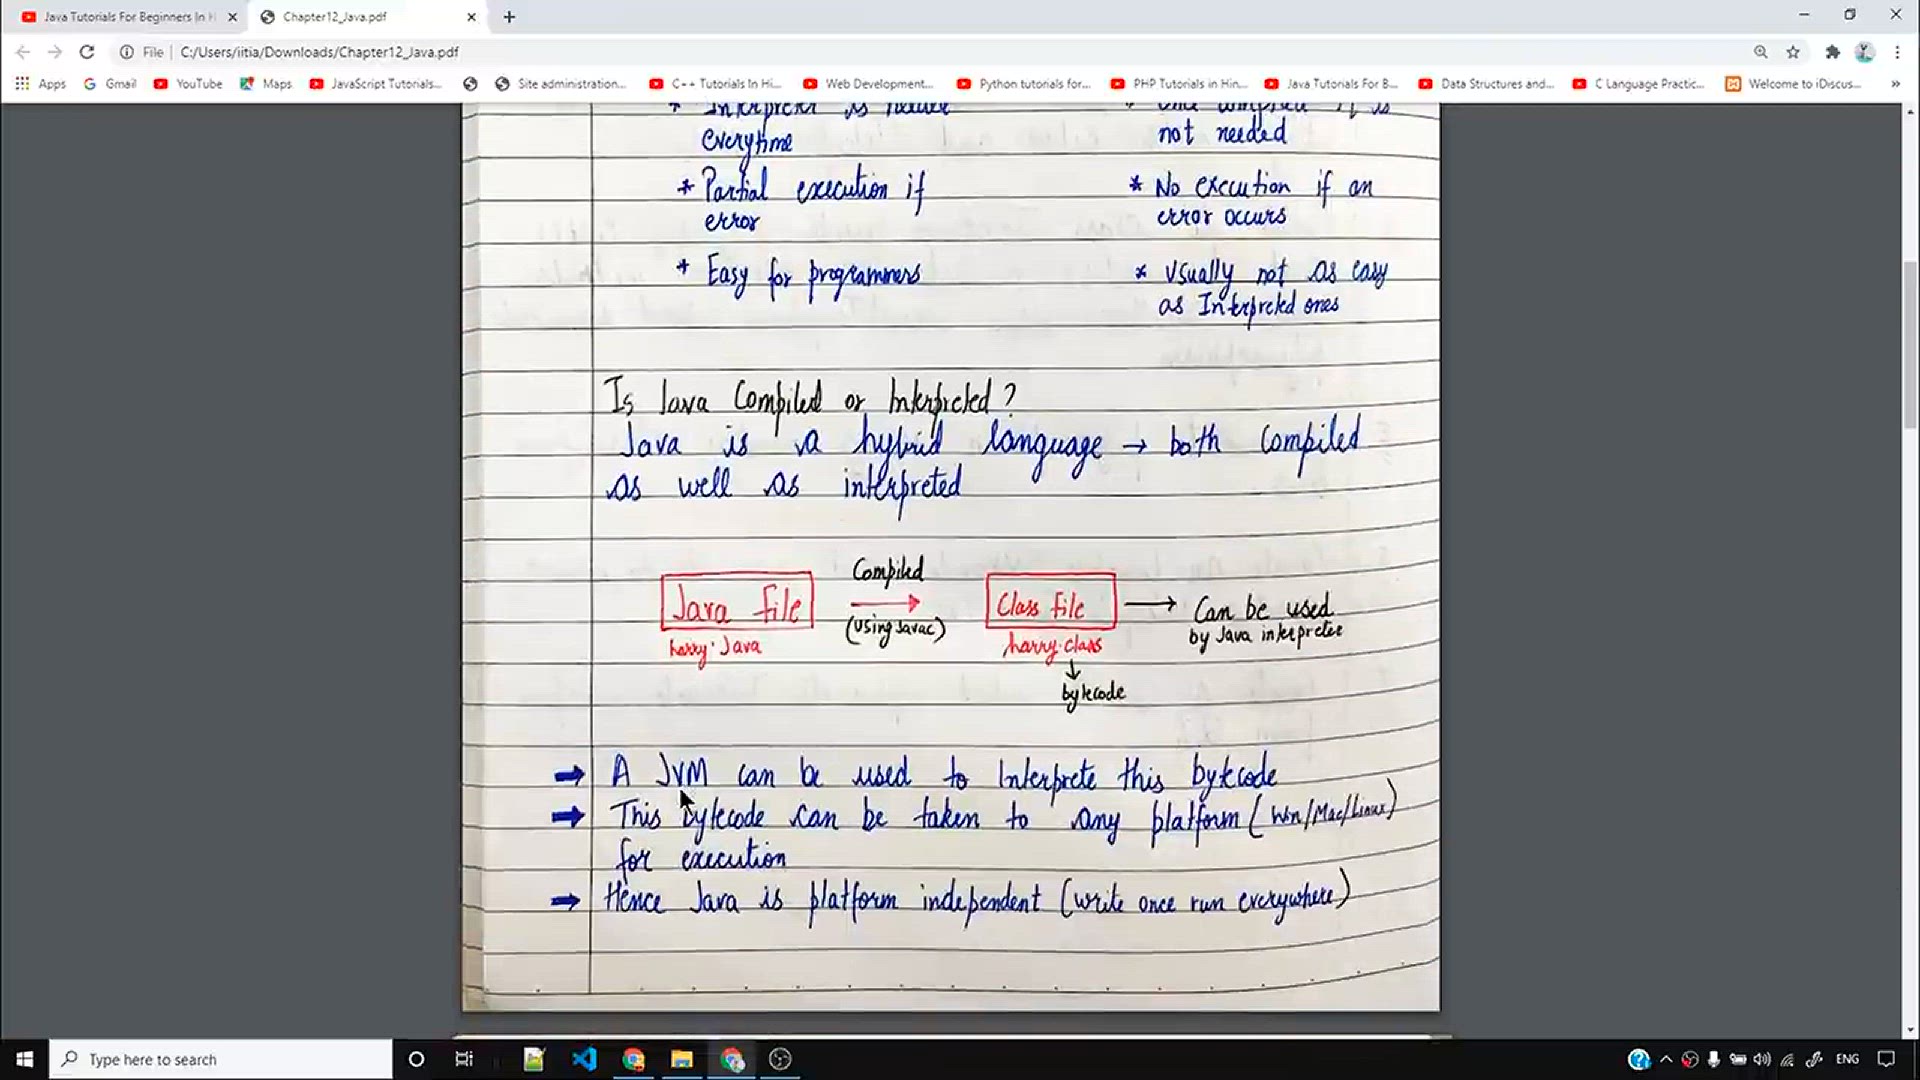 Java Tutorials For Beginners In H
Chapter12_Java.pdf
File | C:/Users/iitia/Downloads/Chapter12_Java.pdf
Apps Gmail YouTube Maps JavaScript Tutorials... Site administration... C++ Tutorials In Hi... Web Development... Python tutorials for... PHP Tutorials in Hin... Java Tutorials For B... Data Structures and... C Language Practic... Welcome to iDiscus... »
everytime
not needed
* Partial execution if
error
* No execution if an
error occurs
* Easy for programmers
* Usually not as easy
as Interpreted ones
Is Java Compiled or Interpreted?
Java is a hybrid language → both compiled
as well as interpreted
Java File
harry.Java
Compiled
(using Javac)
Class file
harry.class
bytecode
Can be used
by Java interpreter
A JVM can be used to Interprete this bytecode
This bytecode can be taken to any platform (Win/Mac/Linux)
for execution
Hence Java is platform independent (write once run everywhere)
Type here to search
ENG